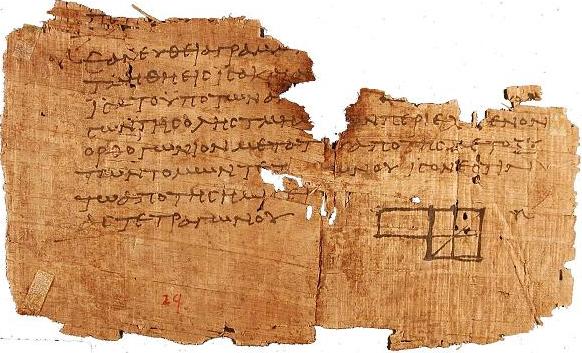 ΕΑΝΕΥΘΕΙΑΓΡΑΜΜ
ΤΜΗΘΗΕΙϹΙϹΑΚΑΙ
ΙϹΑΤΟΥΠΟΤΩΝ
ΤΩΝΤΗϹΟΛΗϹΤΜΗ ΩΝΠΕΡΙΕΧ ΜΕΝΟΝ
ΟΡΘΟΓΩΝΙΟΝΜΕΤΟΤ ΑΠΟΤΗϹΜΕΤΟΞΥ
ΤΩΝΤΟΜΩΝΤΕΤ ΩΝΟΥΙϹΟΝΕϹΤΙΝ
ΤΩΑΠΟΤΗϹΗΜΙ
ΑϹΤΕΤΡΑΓΩΝΟΥ
29